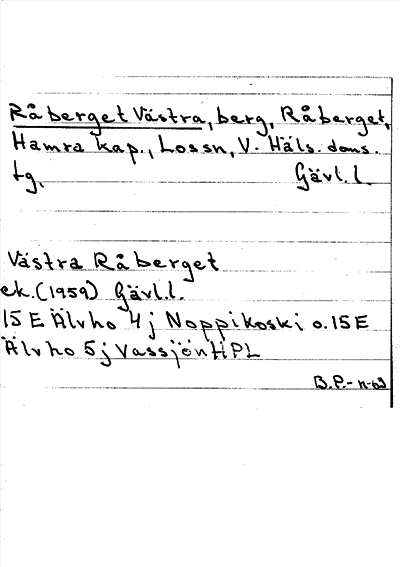 Råberget Västra, berg, Råberget,
Hamra kap., Lossn, V. Häls. doms.
tg. Gävl.l.
Västra Råberget
ek. (1959) Gävl.l.
15 E Älvho 4 j Noppikoski o. 15 E
Älvho 5 j Vassjön HPL
B.P.-n-63